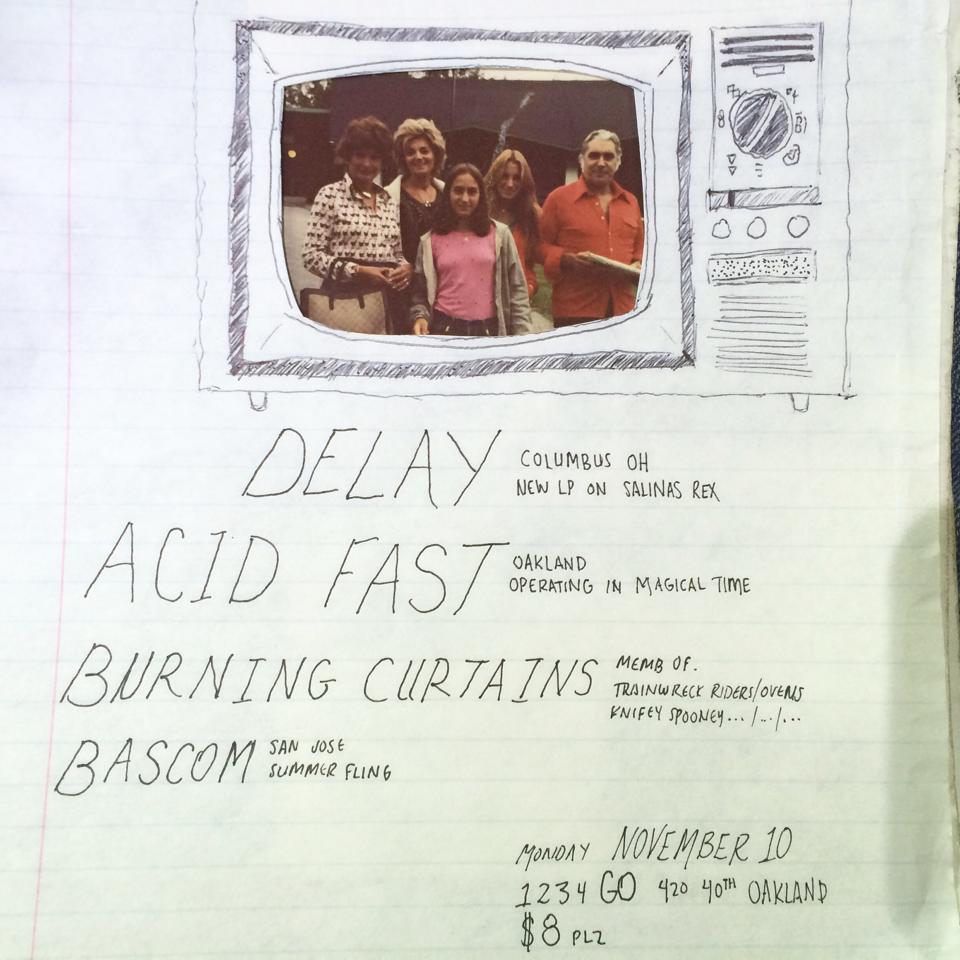 DELAY COLUMBUS OH
NEW LP ON SALINAS REX
ACID FAST OAKLAND
OPERATING IN MAGICAL TIME
BURNING CURTAINS MEMB OF.
TRAINWRECK RIDERS/OVENS
KNIFEY SPOONEY... /.../...
BASCOM SAN JOSE
SUMMER FLING
MONDAY NOVEMBER 10
1234 GO 420 40TH OAKLAND
$8 PLZ